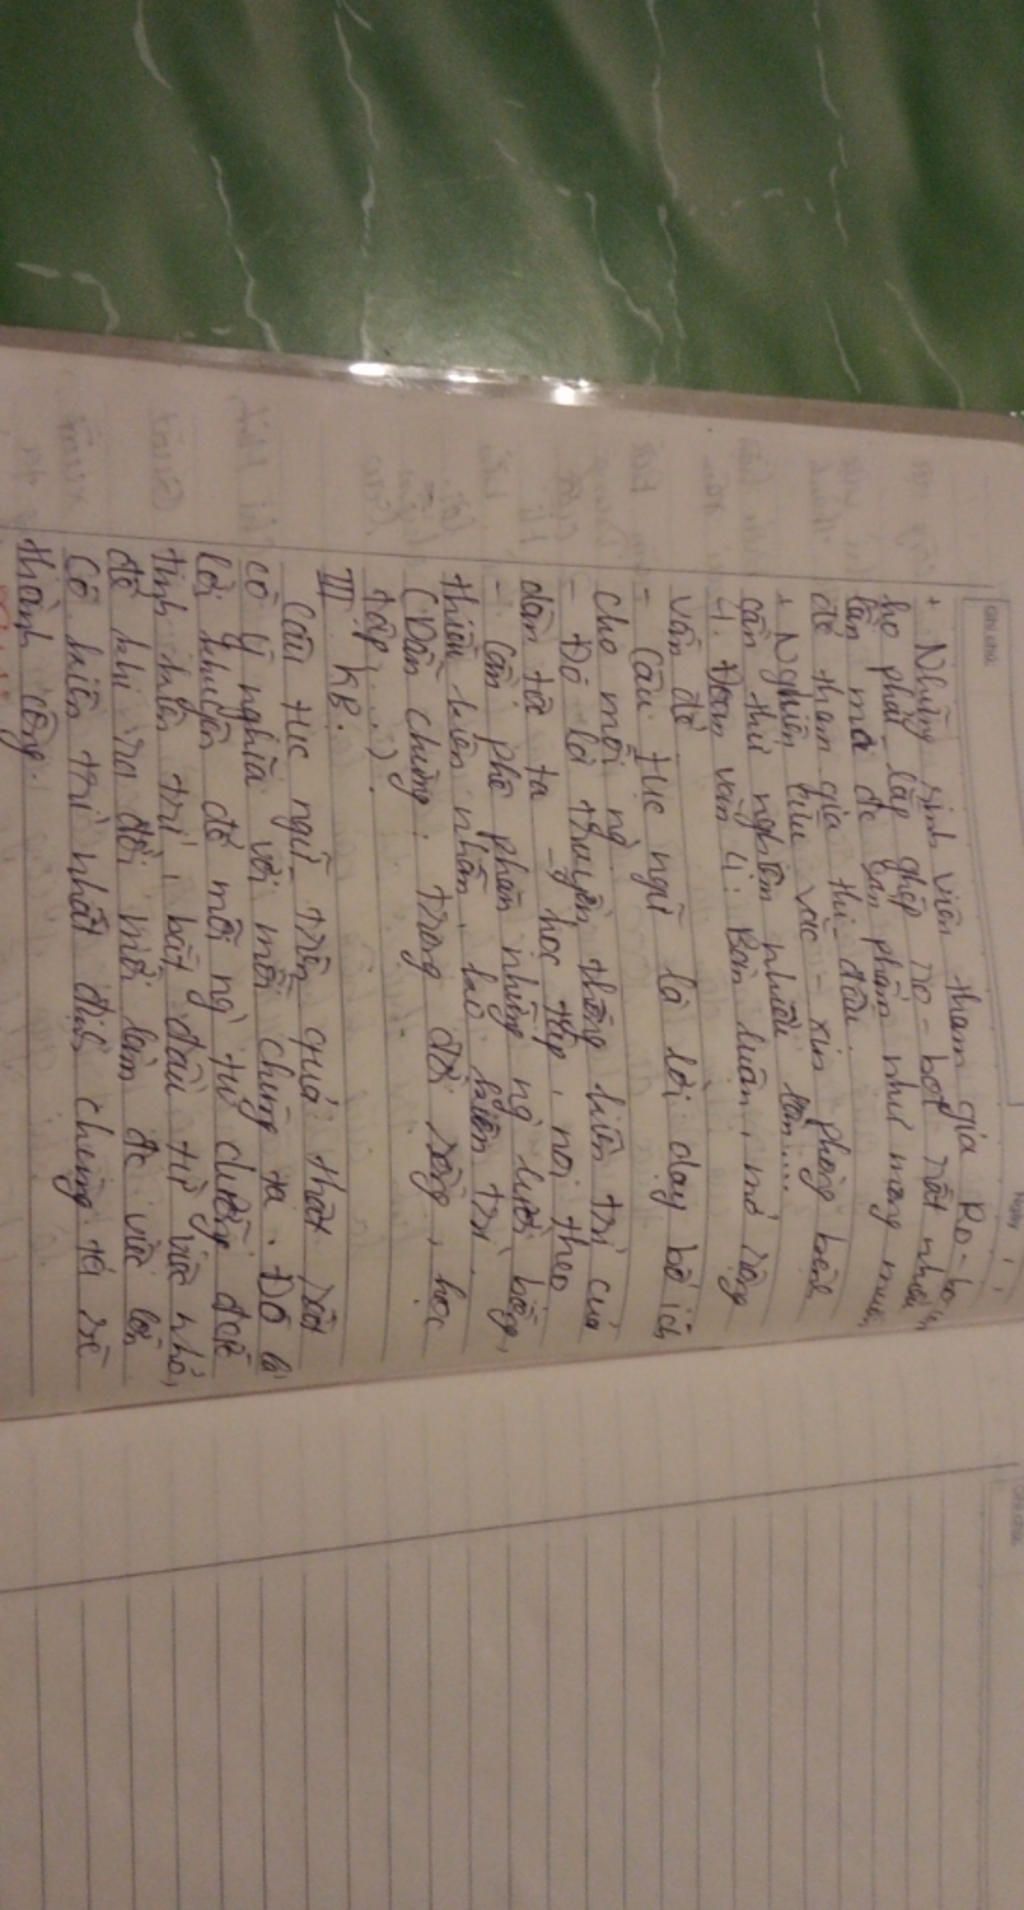 + Những sinh viên tham gia Ro-bo
họ phải lắp ghép rô-bot rất nhiều
lần mới đc sản phẩm như mong muốn
để tham gia thi đấu.
+ Nghiên cứu vắc-xin phòng bệnh
cần thử nghiệm nhiều lần....
4. Đoạn văn 4: Bàn luận, mở rộng
vấn đề
- Câu tục ngữ là lời dạy bổ ích
cho mỗi ng̀.
- Đó là truyền thống kiên trì của
dân tộc ta học tập, noi theo
- Cần phê phán những ng̀ lười biếng,
thiếu kiên nhẫn, kiên trì.
(Dẫn chứng: trong đời sống, học
tập....).
III. KB.
Câu tục ngữ trên quả thật rất
có ý nghĩa với mỗi chúng ta. Đó là
lời khuyên để mỗi ng̀ tu dưỡng đức
tính kiên trì, bắt đầu từ việc nhỏ,
để khi ra đời mới làm đc việc lớn
Có kiên trì nhất định chúng ta sẽ
thành công.